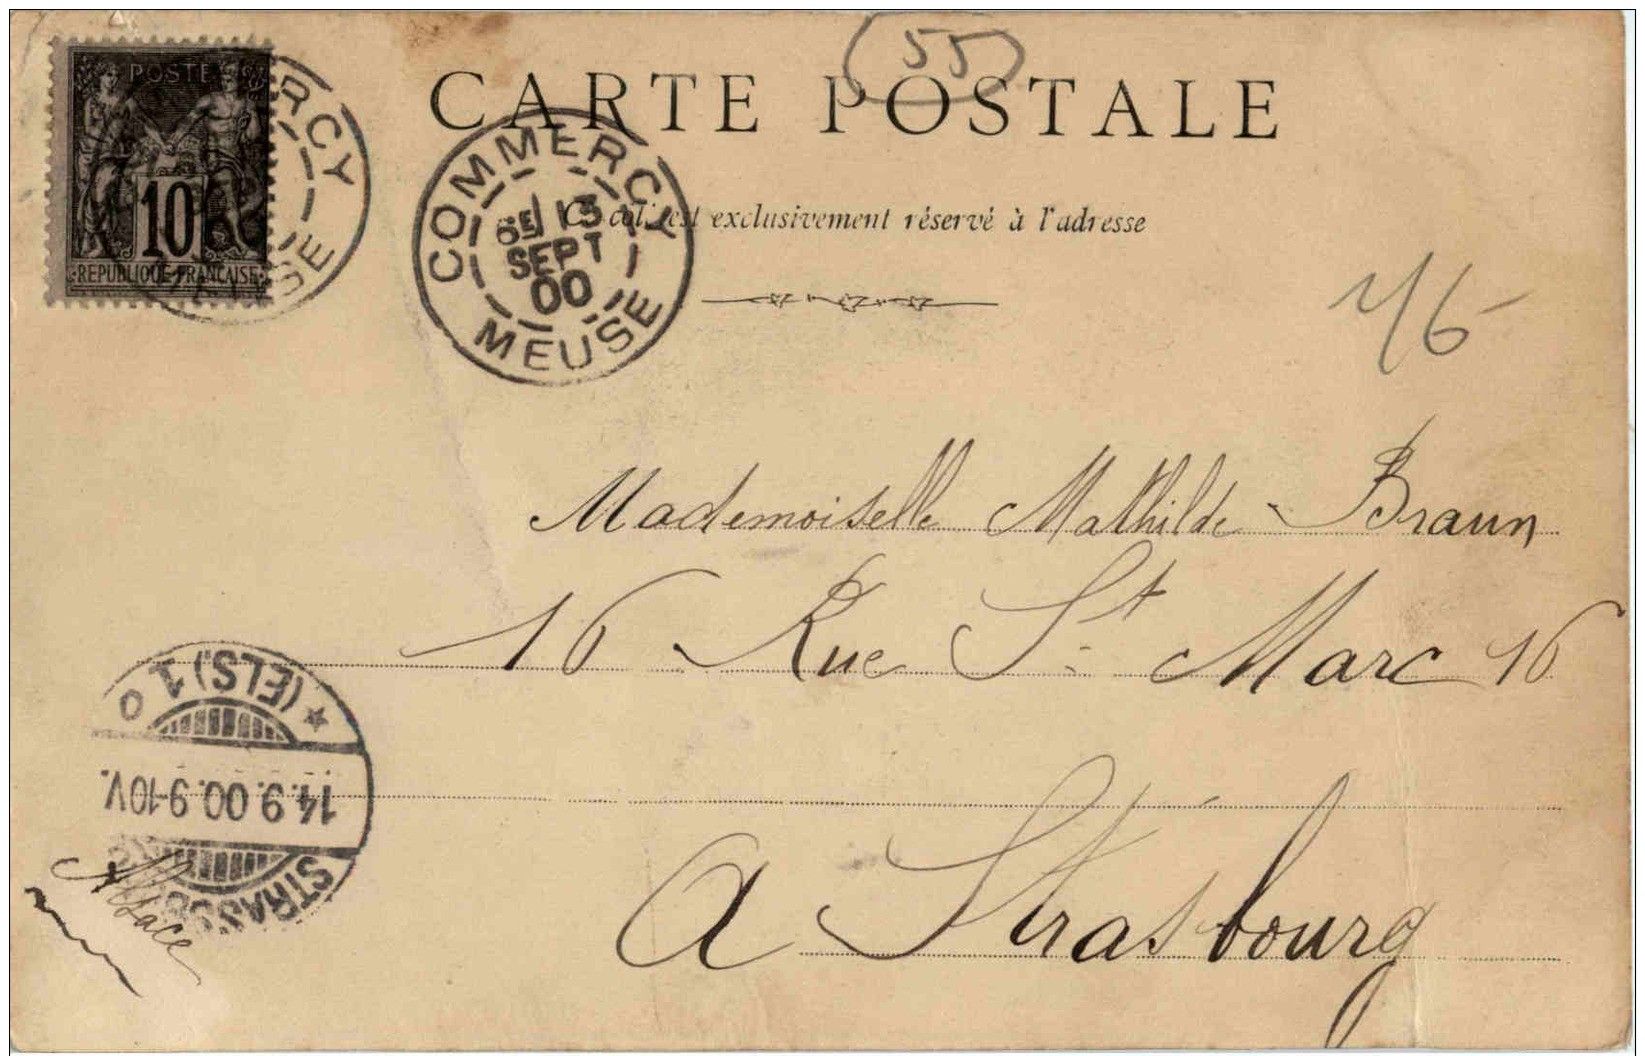 55
CARTE POSTALE
POSTE
10
REPUBLIQUE FRANCAISE
RCY
SE
COMMERCY
6E 13
SEPT
00
MEUSE
Ce côté est exclusivement réservé à l'adresse
Mademoiselle Mathilde Braun
16 Rue St Marc 16
A Strasbourg
Alsace
STRASSB
14.9.00.9-10V.
(ELS.) 1